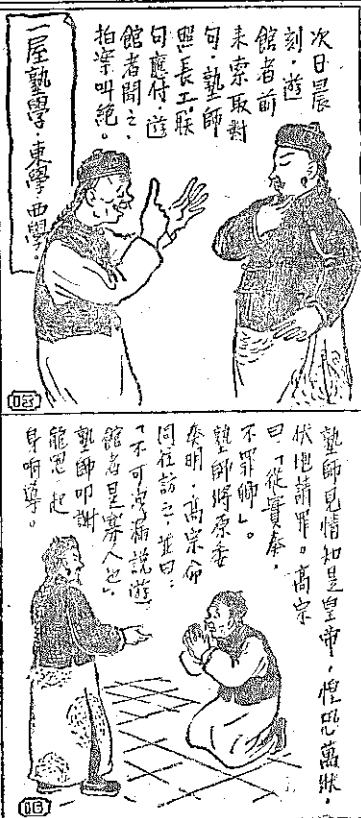 次日晨
刻，遊
館者前
來索取對
句，塾師
照長工聯
句應付，遊
館者聞之，
拍案叫絕。
一屋塾學，東學西學。
塾師見情知是皇帝，惶恐萬狀，
伏地請罪。高宗
曰「從實奏，
不罪師」。
塾師將原委
奏明，高宗命
同往訪之，並曰：
「不可洩漏說遊
館者是寡人也」，
塾師叩謝
龍恩，起
身嚮導。